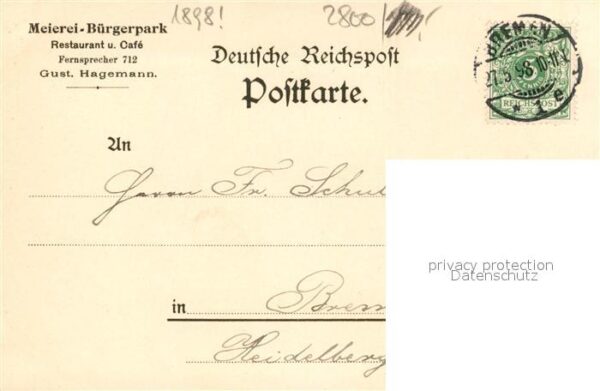 1898! 2800
Meierei-Bürgerpark
Restaurant u. Café
Fernsprecher 712
Gust. Hagemann.
Deutsche Reichspost
Postkarte.
BREMEN
27.5.98 10-11V.
REICHSPOST
* 1 e
An
Herrn Fr. Schul
privacy protection
DATENSCHUTZ
in Brem
Heidelberg